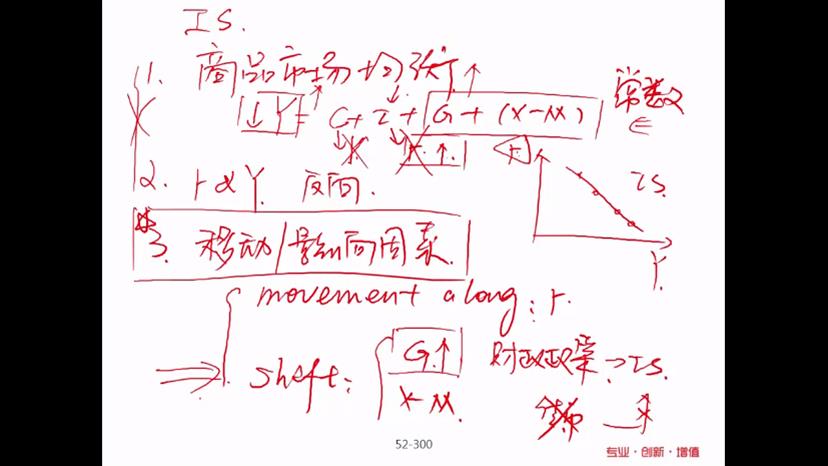 IS.
1. 商品市场均衡
↓Y = C + I + G + (X-M) 常数
r↑. r
2. r & Y 反向. IS.
3. 移动/影响因素. Y
movement along: r.
⇒ shift: G↑ 财政政策→IS.
X-M.
52-300
专业·创新·增值